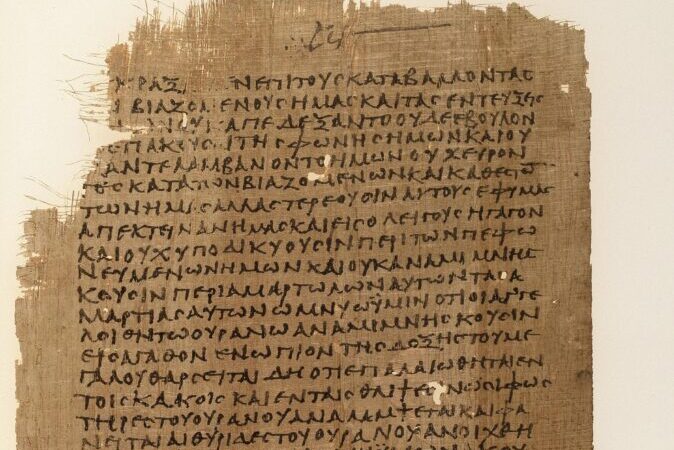 ΚΡΑΞ ΝΕΠΙΤΟΥϹΚΑΤΑΒΑΛΛΟΝΤΑϹ
ΒΙΑΖΟΜΕΝΟΥϹΗΜΑϹΚΑΙΤΑϹΕΝΤΕΥΞΕΙϹ
ΑΠΕΔΕΞΑΝΤΟΟΥΔΕΕΒΟΥΛΟΝ
ΕΠΑΚΟΥϹΑΙΤΗϹΦΩΝΗϹΗΜΩΝΚΑΙΟΥ
ΑΝΤΕΛΑΜΒΑΝΟΝΤΟΗΜΩΝΟΥΧΕΥΡΟΝ
ΤΕϹΚΑΤΑΤΩΝΒΙΑΖΟΜΕΝΩΝΚΑΙΚΑΤΕϹΘΟ
ΤΩΝΗΜΑϹΑΛΛΑϹΤΕΡΕΟΥϹΙΝΑΥΤΟΥϹΕΦΥΜΑϹ
ΑΠΕΚΤΕΙΝΑΝΗΜΑϹΚΑΙΕΙϹΟΛΕΙΓΟΥϹΗΓΑΓΟΝ
ΚΑΙΟΥΧΥΠΟΔΙΚΥΟΥϹΙΝΠΕΡΙΤΩΝΠΕΦΩ
ΝΕΥΜΕΝΩΝΗΜΩΝΚΑΙΟΥΚΑΝΑΜΙΜΝΗϹ
ΚΟΥϹΙΝΠΕΡΙΑΜΑΡΤΩΛΩΝΑΥΤΩΝΤΑϹΑ
ΜΑΡΤΙΑϹΑΥΤΩΝΟΜΝΥΩΥΜΙΝΟΤΙΟΙΑΓΓΕ
ΛΟΙΕΝΤΩΟΥΡΑΝΩΑΝΑΜΙΜΝΗϹΚΟΥϹΙΝ
ΕΙϹΑΓΑΘΟΝΕΝΩΠΙΟΝΤΗϹΔΟΞΗϹΤΟΥΜΕ
ΓΑΛΟΥΘΑΡϹΕΙΤΑΙΔΗΟΤΙΕΠΑΛΑΙΩΘΗΤΑΙΕΝ
ΤΟΙϹΚΑΚΟΙϹΚΑΙΕΝΤΑΙϹΘΛΙΨΕϹΙΝΩϹΙΦΩϹ
ΤΗΡΕϹΤΟΥΟΥΡΑΝΟΥΑΝΑΛΑΜΨΕΤΑΙΚΑΙΦΑ
ΝΕΙΤΑΙΑΙΘΥΡΙΔΕϹΤΟΥΟΥΡΑΝΟΥΑΝΟΙΧΘΗ